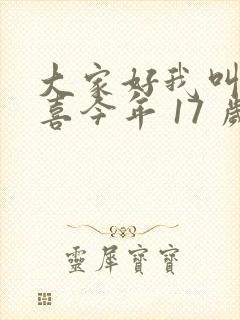 大家好我叫
喜今年 17 歲
靈犀寶寶